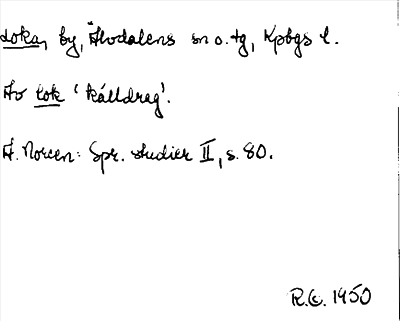 Loka, by, Älvdalens sn o. tg, Kpbgs l.
Av lok 'källdrag'.
A. Noreen: Spr. studier II, s. 80.
R.G. 1950